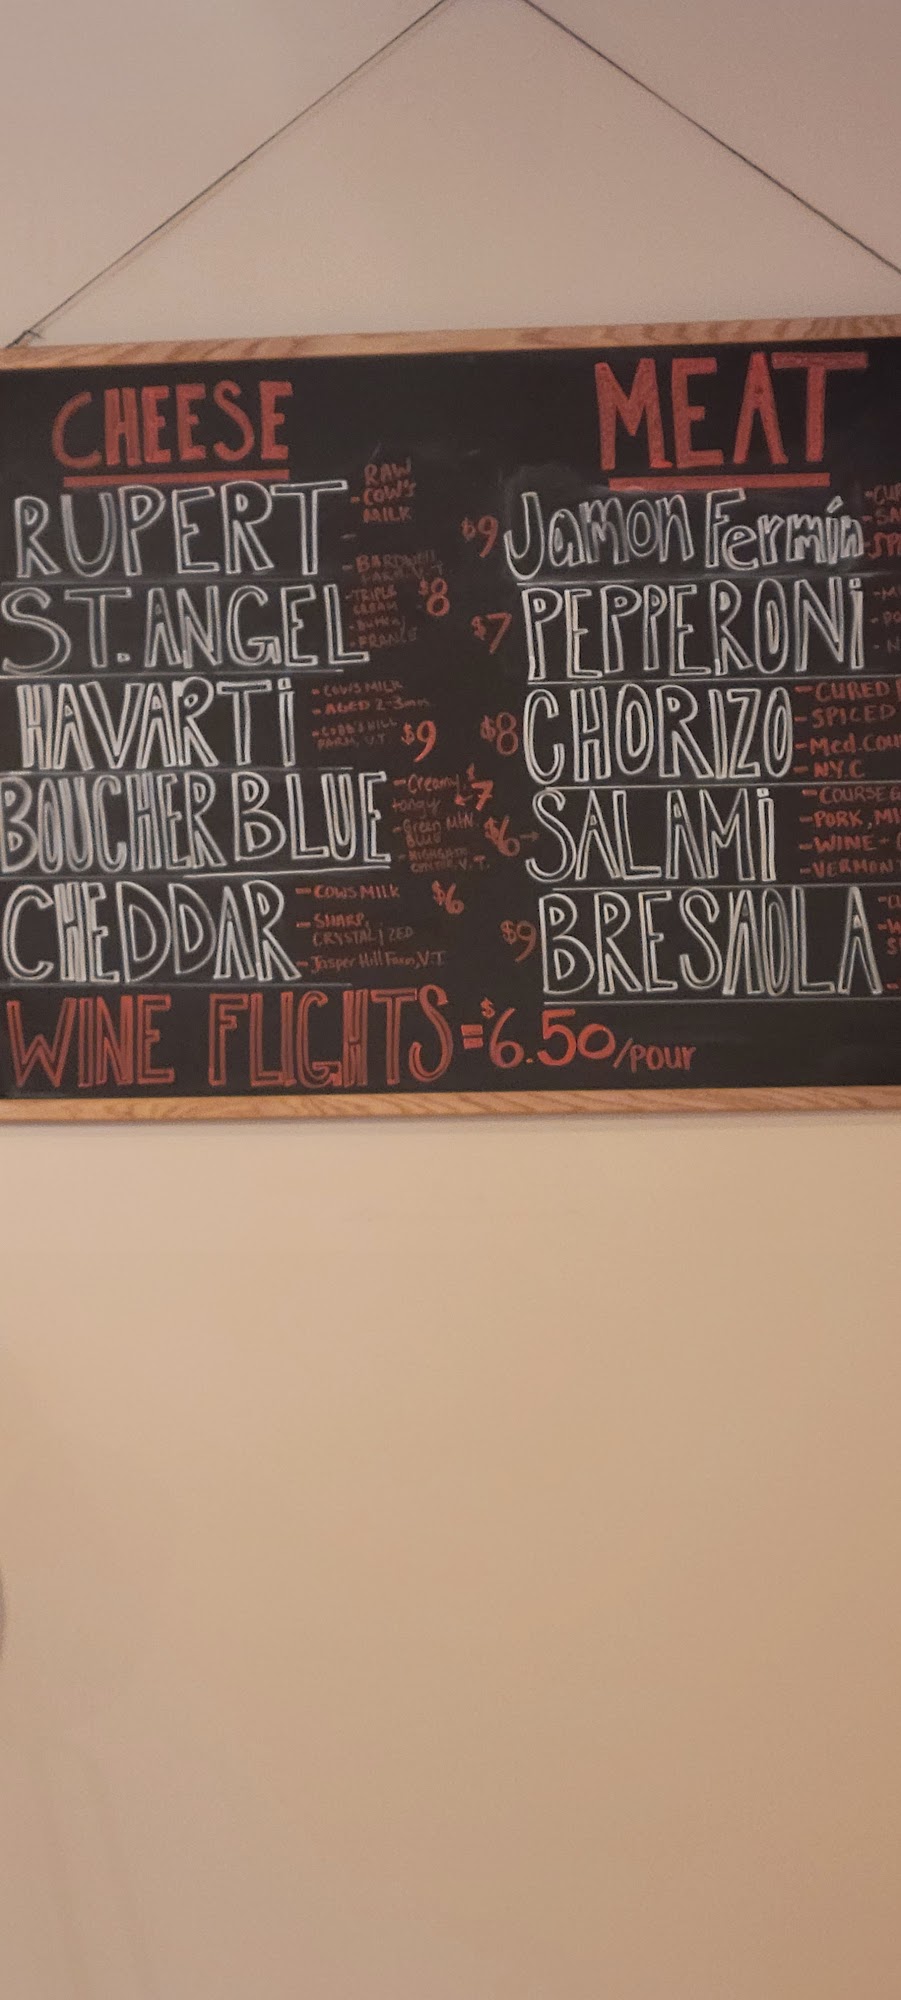 CHEESE
RUPERT
-RAW
COW'S
MILK
ST. ANGEL
-TRIPLE
CREAM
-FRANCE
$8
HAVARTI
-COWS MILK
-AGED 2-3
FARM, V.T.
$9
BOUCHER BLUE
-Creamy,
tangy
-Green MTN.
BLUE
-HIGHGATE
CENTER, V.T.
$7
CHEDDAR
-COWS MILK
-SHARP,
CRYSTALIZED
-Jasper Hill Farm, V.T.
$6
MEAT
$9 Jamon Fermín
$7 PEPPERONI
$8 CHORIZO
-CURED
-SPICED
-Med. Cou
-N.Y.C
$6→ SALAMI
-COURSE G
-PORK, MI
-WINE +
-VERMONT
$9 BRESAOLA
WINE FLIGHTS = $6.50/pour